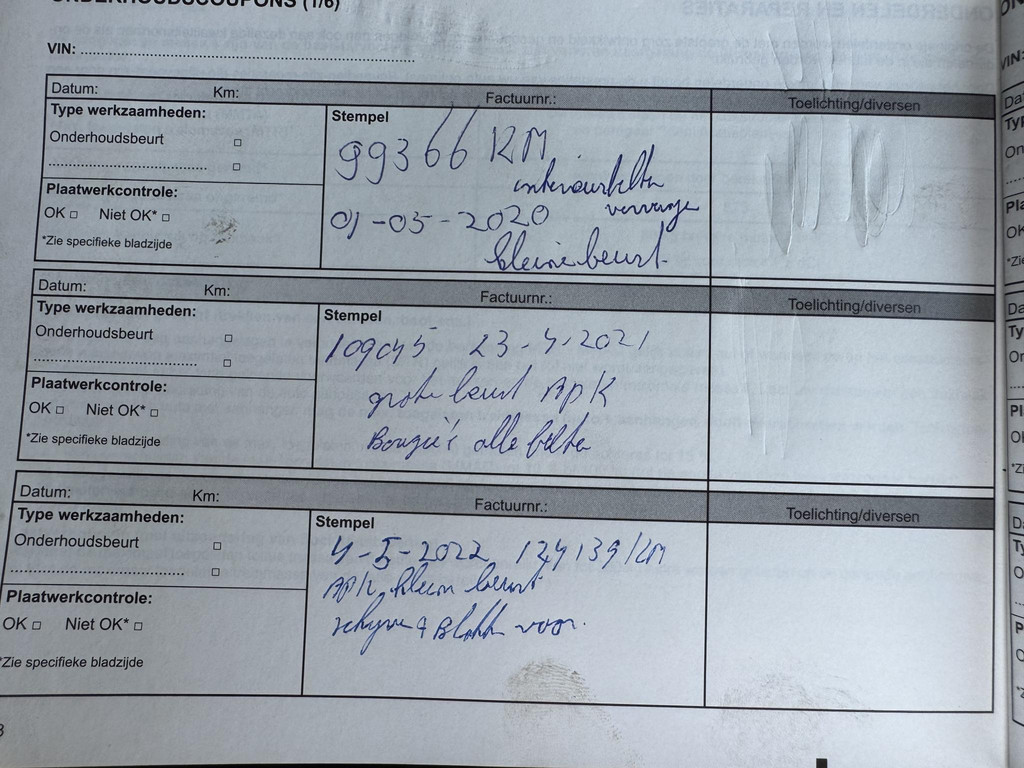 ONDERHOUDSCOUPONS (1/6)
VIN:
Datum: Km: Factuurnr.: Toelichting/diversen
Type werkzaamheden:
Onderhoudsbeurt
Plaatwerkcontrole:
OK □ Niet OK* □
*Zie specifieke bladzijde
Stempel
99366 KM
vervange
01-05-2020
kleine beurt
Datum: Km: Factuurnr.: Toelichting/diversen
Type werkzaamheden:
Onderhoudsbeurt
Plaatwerkcontrole:
OK □ Niet OK* □
*Zie specifieke bladzijde
Stempel
109045 23-4-2021
grote beurt APK
Bougie's alle filters
Datum: Km: Factuurnr.: Toelichting/diversen
Type werkzaamheden:
Onderhoudsbeurt
Plaatwerkcontrole:
OK □ Niet OK* □
*Zie specifieke bladzijde
Stempel
4-5-2022 124139 KM
APK klein beurt
schijven & Blokke voor.